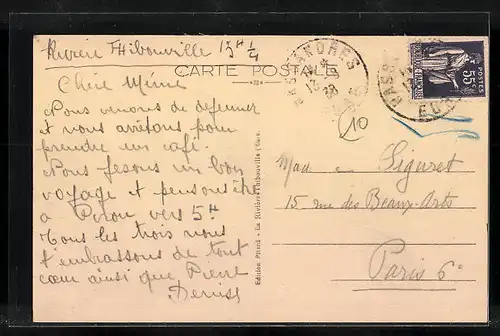 Rivière Thibouville 13H ¼
CARTE POSTALE
Chère Mémé
Nous venons de déjeuner
et nous arrêtons pour
prendre un café.
Nous fesons un bon
voyage et pensons être
a vers 5H
Tous les trois nous
t'embrassons de tout
cœur ainsi que Pierre
Denise
Edition Primä - La Rivière-Thibouville (Eure)
38
55c
10
Mad Liguret
15 rue des Beaux-Arts
Paris 6e